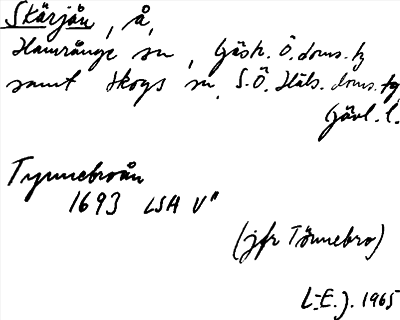 Skärjån, å,
Hamrånge sn, Gästr. Ö. doms. tg
samt Skogs sn, S. Ö. Häls. doms. tg,
Gävl. l.
Tynnebroån
1693 LSA V"
(jfr Tönnebro)
L-E. J. 1965